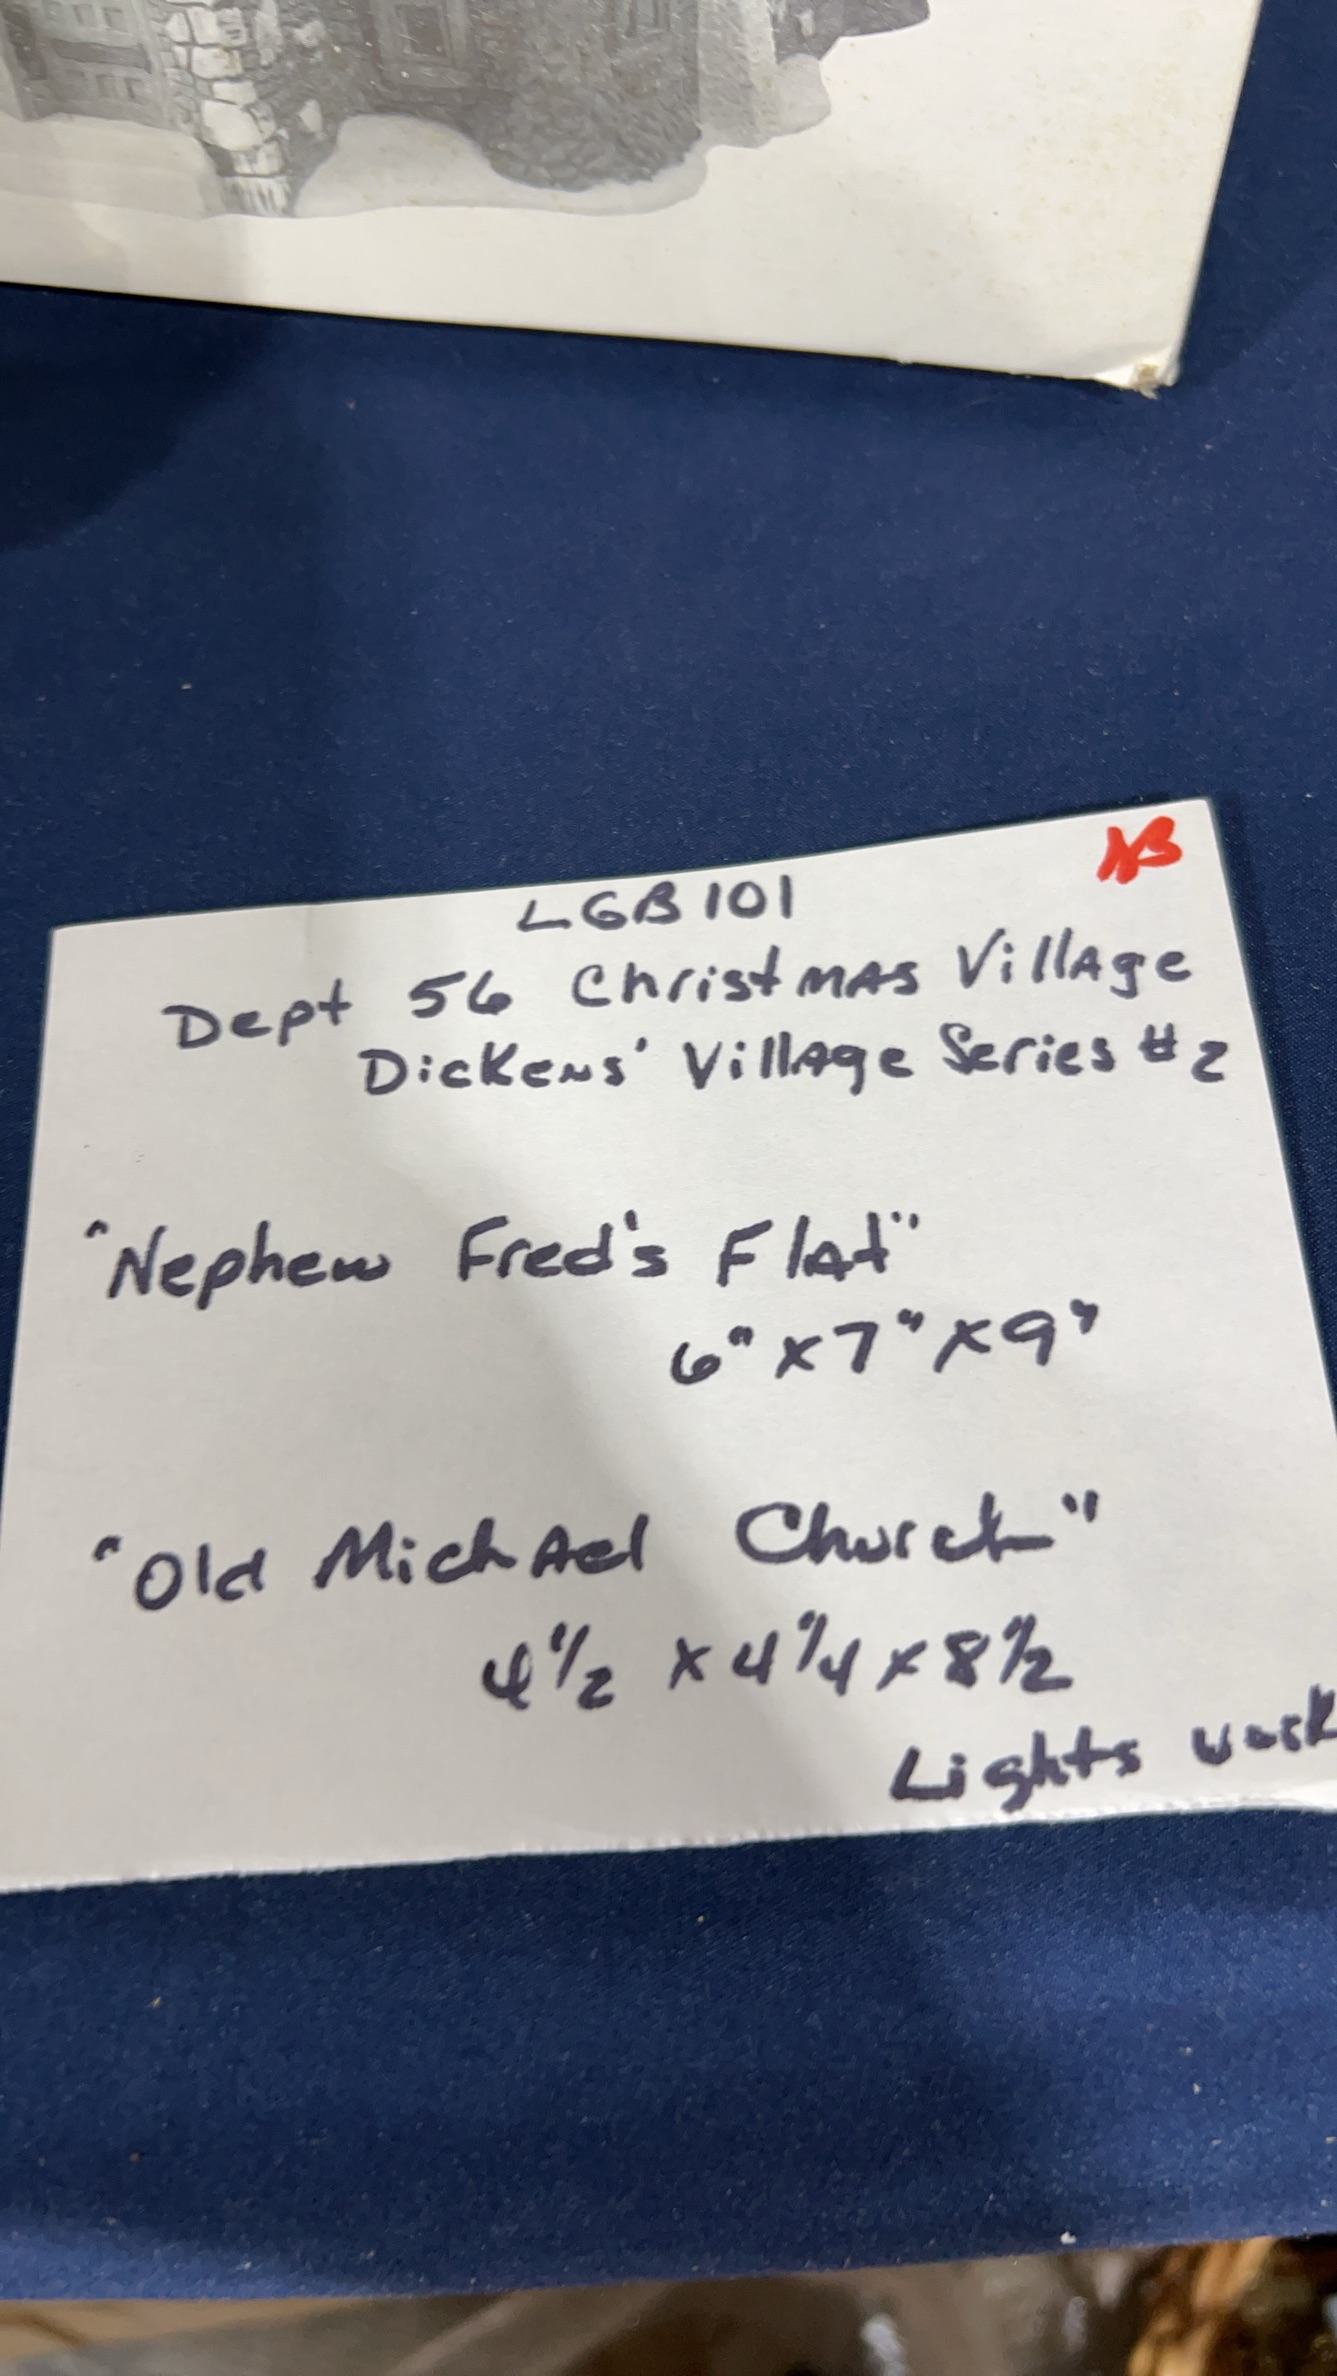 NB
LGB 101
Dept 56 Christmas Village
Dickens' Village Series #2
"Nephew Fred's Flat"
6" x 7" x 9"
"Old Michael Church"
4 1/2 x 4 1/4 x 8 1/2
Lights work